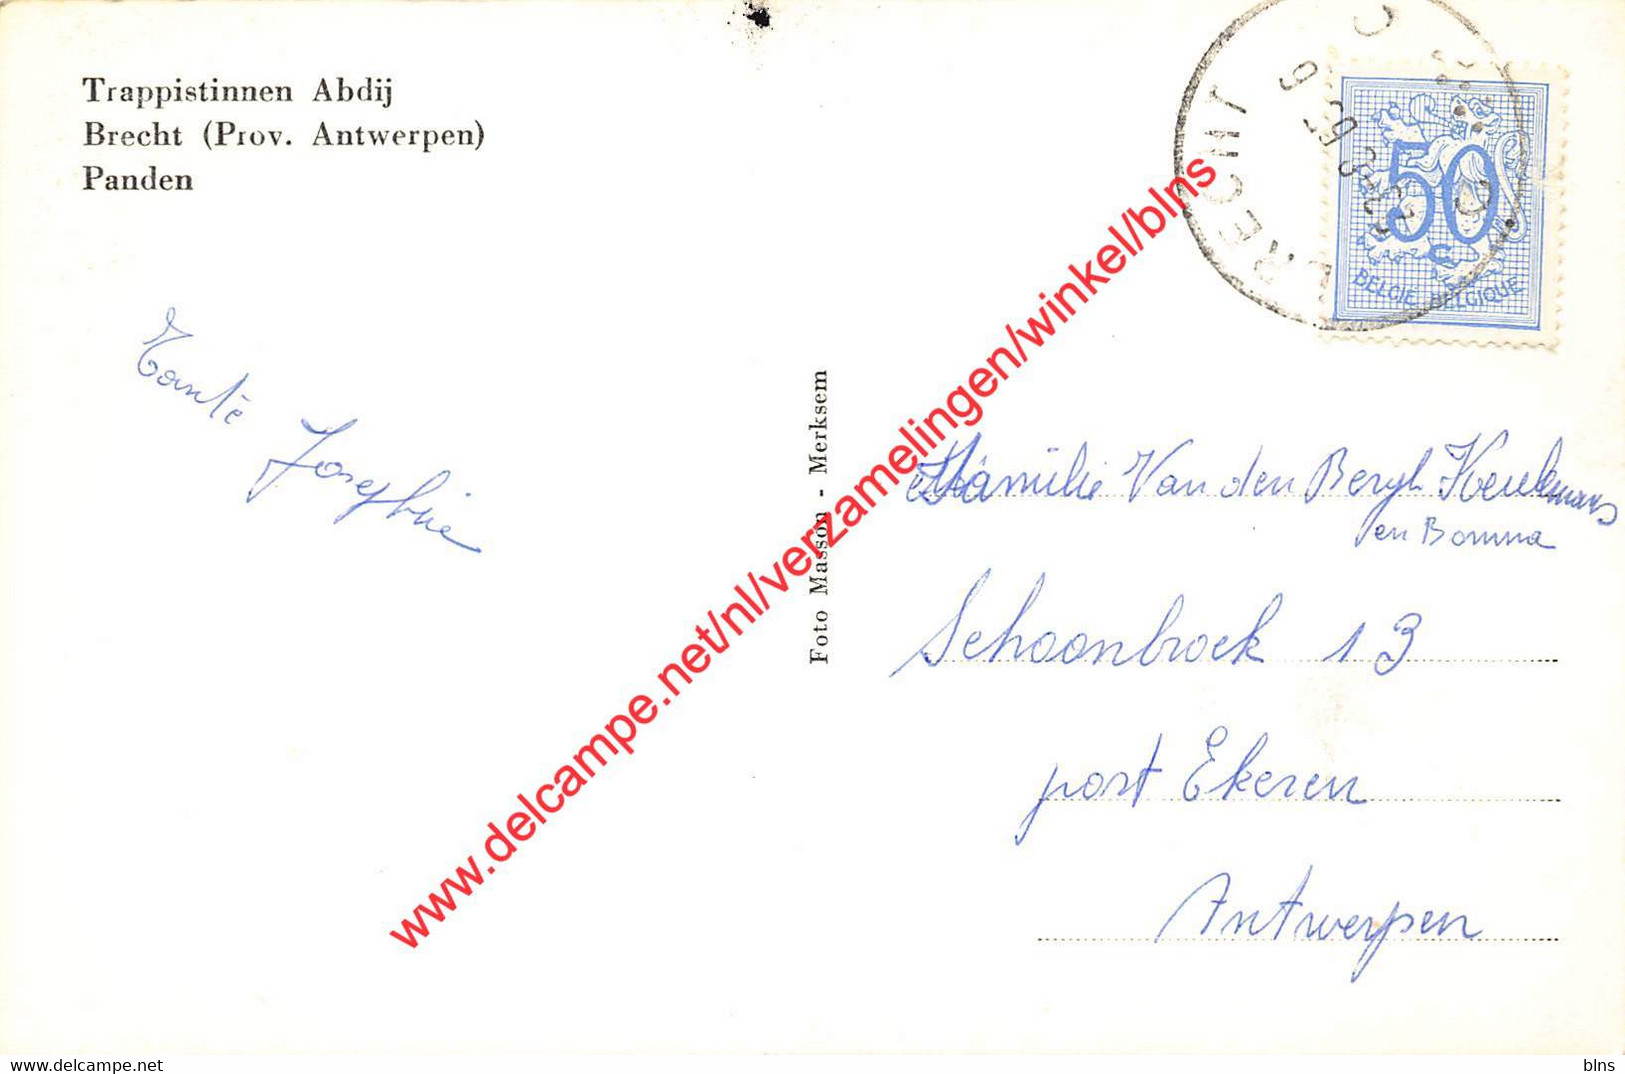 Trappistinnen Abdij
Brecht (Prov. Antwerpen)
Panden
Tante
Josephine
Foto Masson - Merksem
BRECHT
50
C
BELGIE BELGIQUE
Familie Van den Bergh Keulemans
en Bomma
Schoonbroek 13
post Ekeren
Antwerpen
www.delcampe.net/nl/verzamelingen/winkel/blns
blns